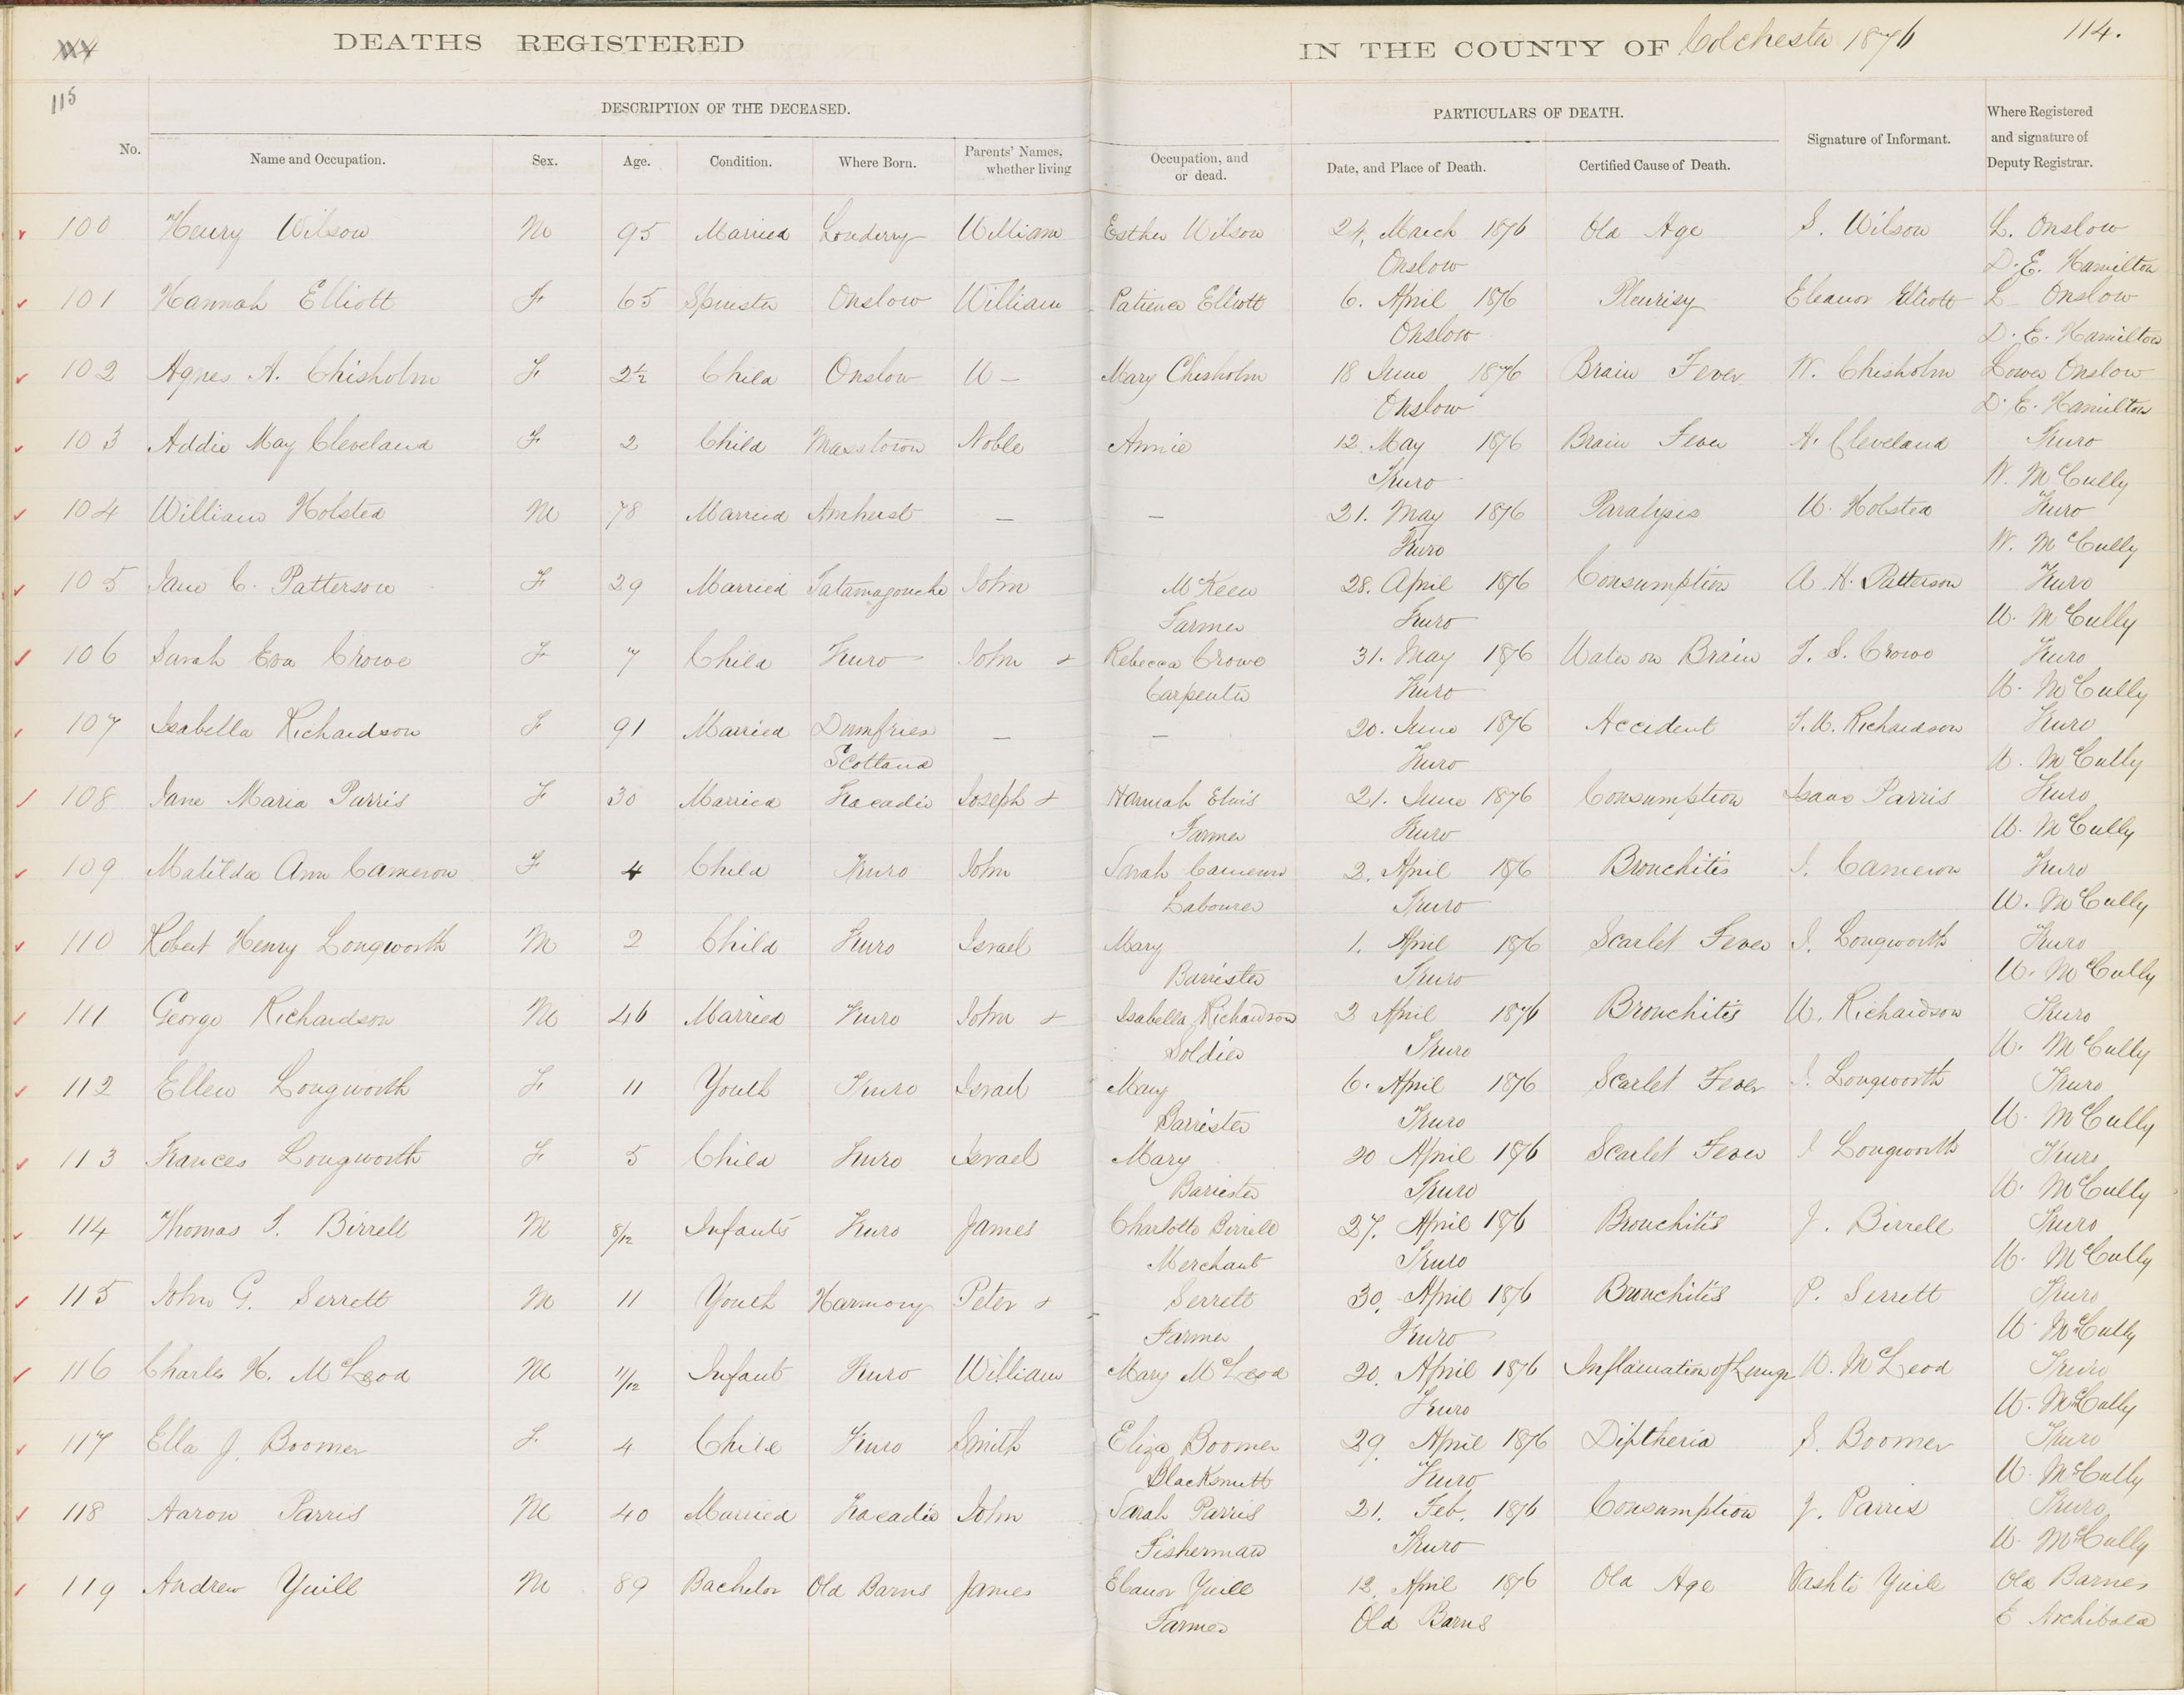 DEATHS REGISTERED IN THE COUNTY OF Colchester 1876 114.
115
DESCRIPTION OF THE DECEASED. PARTICULARS OF DEATH.
No. Name and Occupation. Sex. Age. Condition. Where Born. Parents' Names, whether living Occupation, and or dead. Date, and Place of Death. Certified Cause of Death. Signature of Informant. Where Registered and signature of Deputy Registrar.
100 Henry Wilson M 95 Married Londerry William Esther Wilson 24, March 1876 Old Age S. Wilson L. Onslow
Onslow D. E. Hamilton
101 Hannah Elliott F 65 Spinster Onslow William Patience Elliott 6. April 1876 Pleurisy Eleanor Elliott L Onslow
Onslow D. E. Hamilton
102 Agnes A. Chisholm F 2½ Child Onslow W — Mary Chisholm 18 June 1876 Brain Fever W. Chisholm Lower Onslow
Onslow D. E. Hamilton
103 Addie May Cleveland F 2 Child Masstown Noble Annie 12. May 1876 Brain Fever N. Cleveland Truro
Truro W. McCully
104 William Holsted M 78 Married Amherst — — 21. May 1876 Paralysis W. Holsted Truro
Truro W. McCully
105 Jane C. Patterson F 29 Married Tatamagouche John McKeen 28. April 1876 Consumption A. H. Patterson Truro
Farmer Truro W. McCully
106 Sarah Eva Crowe F 7 Child Truro John & Rebecca Crowe 31. May 1876 Water on Brain J. S. Crowe Truro
Carpenter Truro W. McCully
107 Isabella Richardson F 91 Married Dumfries — — 20. June 1876 Accident J. W. Richardson Truro
Scotland Truro W. McCully
108 Jane Maria Parris F 30 Married Tracadie Joseph & Hannah Elms 21. June 1876 Consumption Isaac Parris Truro
Farmer Truro W. McCully
109 Matilda Ann Cameron F 4 Child Truro John Sarah Cameron 2. April 1876 Bronchitis J. Cameron Truro
Labourer Truro W. McCully
110 Robert Henry Longworth M 2 Child Truro Israel Mary 1. April 1876 Scarlet Fever I. Longworth Truro
Barrister Truro W. McCully
111 George Richardson M 46 Married Truro John & Isabella Richardson 2 April 1876 Bronchitis W. Richardson Truro
Soldier Truro W. McCully
112 Ellen Longworth F 11 Youth Truro Israel Mary 6. April 1876 Scarlet Fever I. Longworth Truro
Barrister Truro W. McCully
113 Frances Longworth F 5 Child Truro Israel Mary 20 April 1876 Scarlet Fever I Longworth Truro
Barrister Truro W. McCully
114 Thomas J. Birrell M 8/12 Infants Truro James Charlotte Birrell 27. April 1876 Bronchitis J. Birrell Truro
Merchant Truro W. McCully
115 John G. Serrett M 11 Youth Harmony Peter & Serrett 30. April 1876 Bronchitis P. Serrett Truro
Farmer Truro W. McCully
116 Charles H. McLeod M 11/12 Infant Truro William Mary McLeod 20. April 1876 Inflamation of Lungs W. McLeod Truro
Truro W. McCully
117 Ella J. Boomer F. 4 Child Truro Smith Eliza Boomer 29. April 1876 Diptheria S. Boomer Truro
Blacksmith Truro W. McCully
118 Aaron Parris M 40 Married Tracadie John Sarah Parris 21. Feb. 1876 Consumption J. Parris Truro
Fisherman Truro W. McCully
119 Andrew Yuill M 89 Bachelor Old Barns James Eleanor Yuill 12. April 1876 Old Age Vashti Yuill Old Barnes
Farmer Old Barns E Archibald